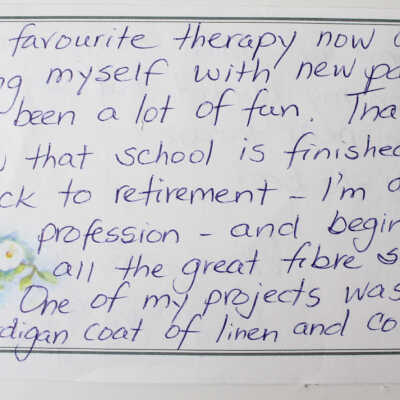 favourite therapy now
myself with new
been a lot of fun.
that school is finished
to retirement - I'm
profession - and begin
all the great fibre
One of my projects was
coat of linen and